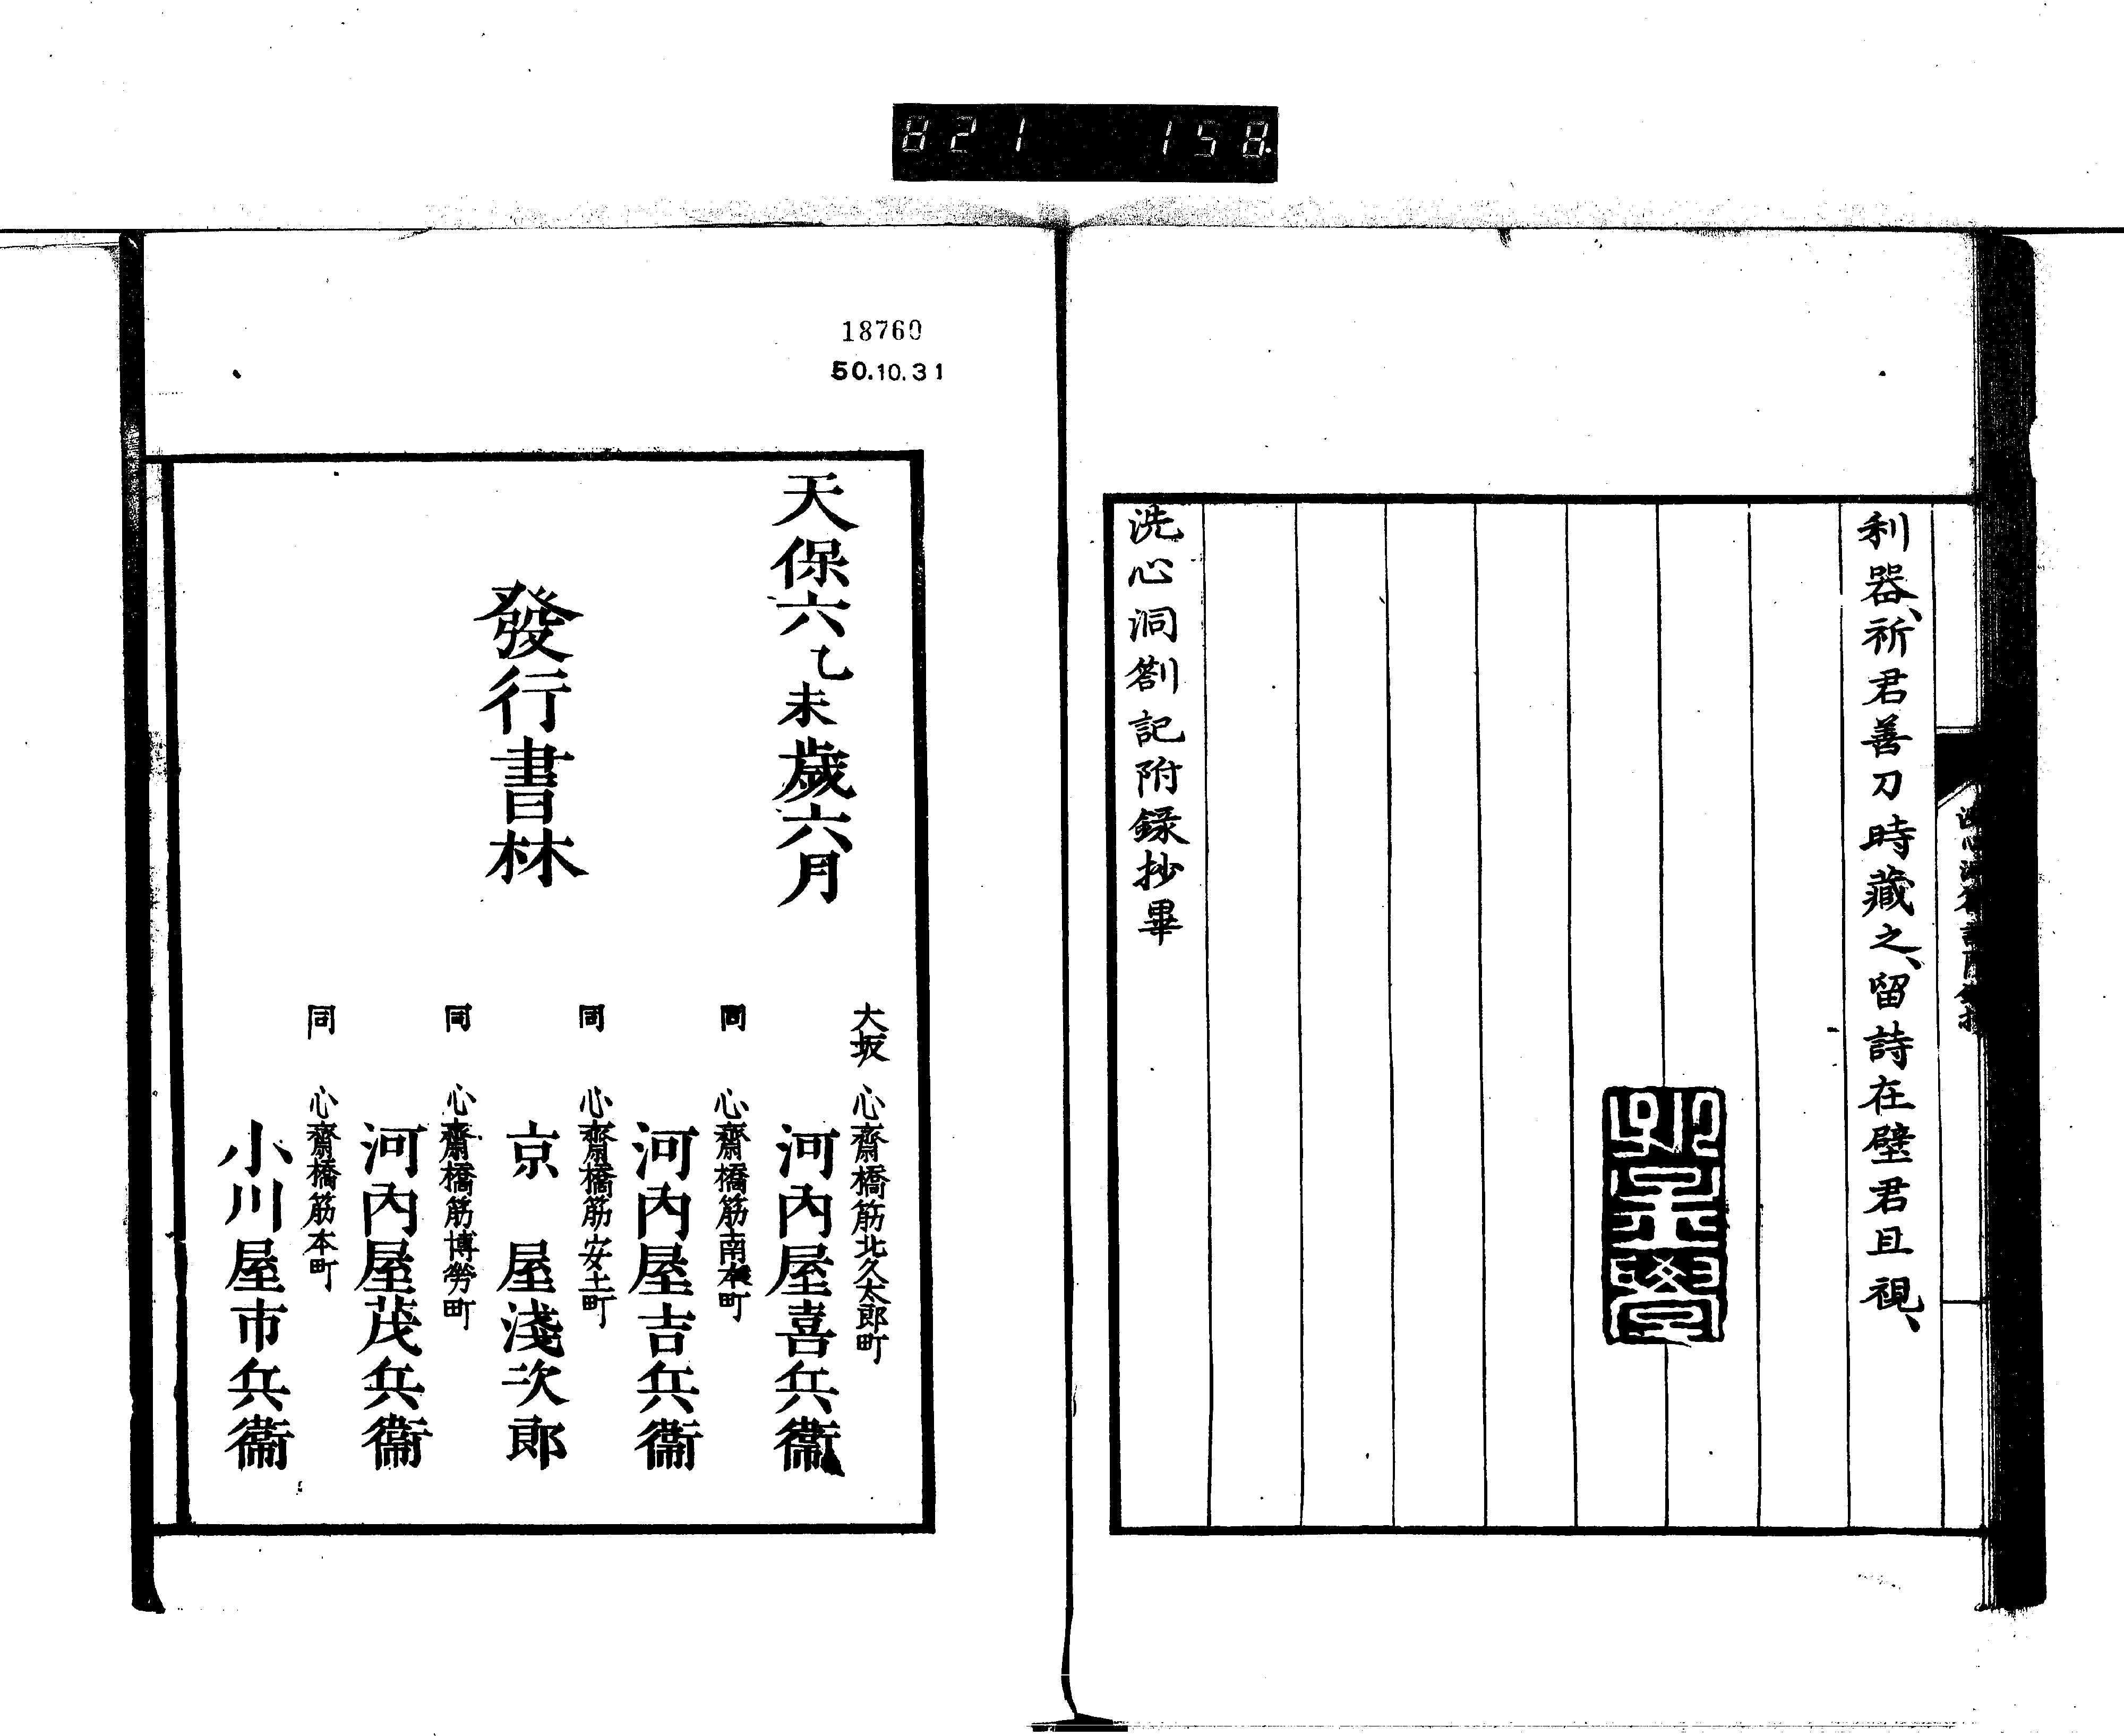 821 158
利器、祈君善刀時藏之、留詩在壁君且視、
洗心洞劄記附錄抄畢
18760
50.10.31
天保六乙未歲六月
發行書林
大坂 心齋橋筋北久太郎町
河內屋喜兵衞
同 心齋橋筋南本町
河內屋吉兵衞
同 心齋橋筋安土町
京屋淺次郎
同 心齋橋筋博勞町
河內屋茂兵衞
同 心齋橋筋本町
小川屋市兵衞